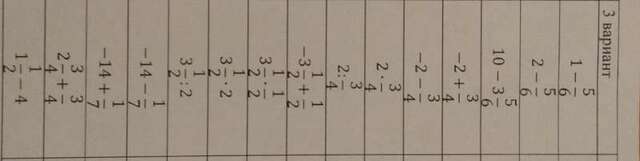 3 вариант
1 − 5/6
2 − 5/6
10 − 3 5/6
−2 + 3/4
−2 − 3/4
2 · 3/4
2 : 3/4
−3 1/2 + 1/2
3 1/2 · 1/2
3 1/2 · 2
3 1/2 : 2
−14 − 1/7
−14 + 1/7
2 3/4 + 3/4
1 1/2 − 4